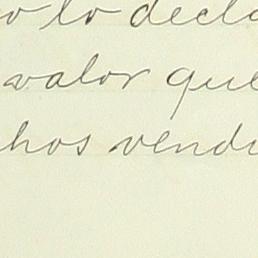 o lo decla
valor que
hos vendi